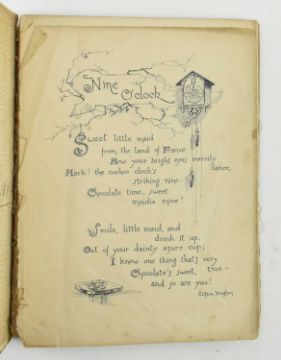 Nine
O'clock
Sweet little maid
from the land of France
How your bright eyes merrily
dance,
Hark! the cuckoo clock's
striking nine
Chocolate time, sweet
maidie mine!
Smile, little maid, and
drink it up,
Out of your dainty azure cup;
I know one thing that's very
true –
Chocolate's sweet,
and so are you!